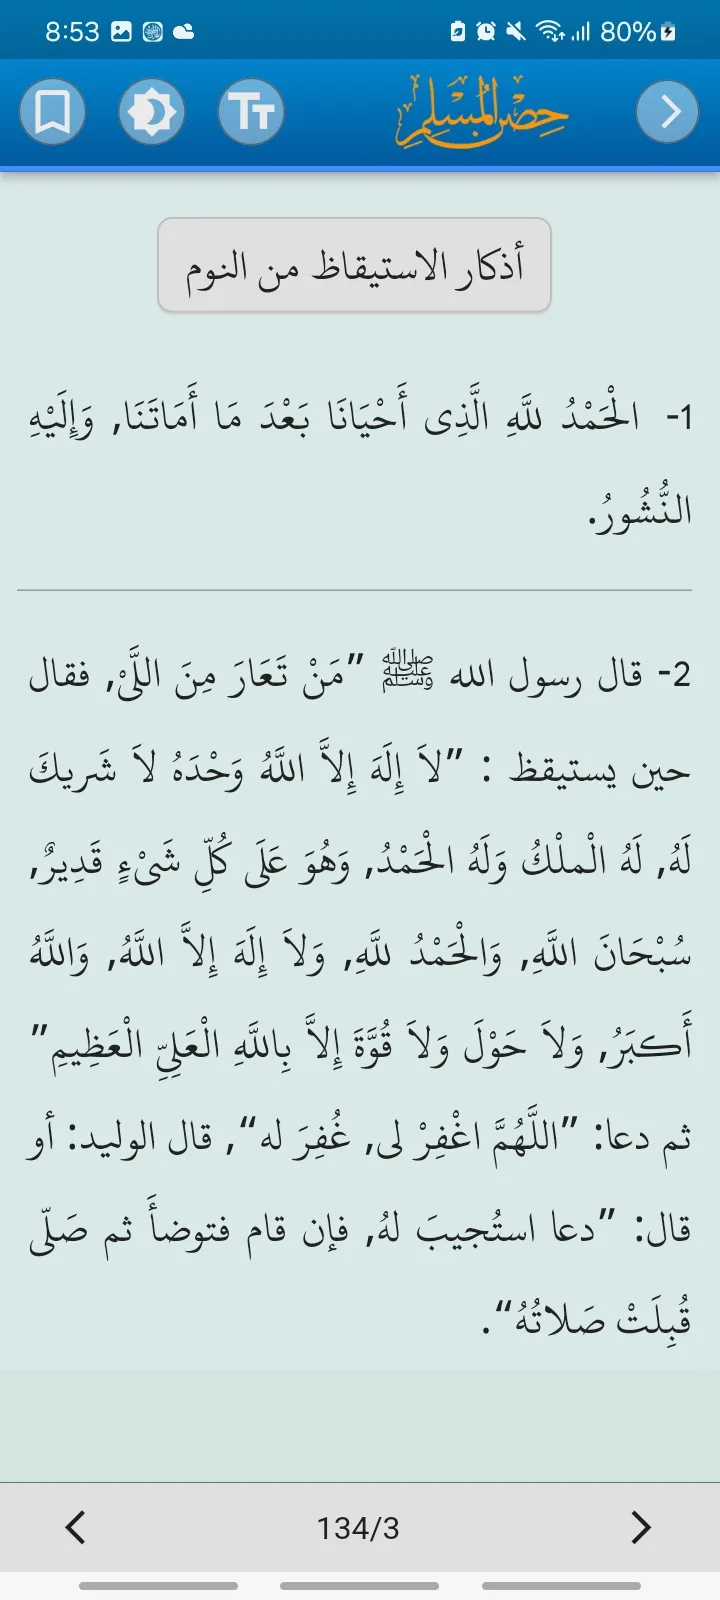 8:53
80%
حصن المسلم
أذكار الاستيقاظ من النوم
1- الْحَمْدُ للَّهِ الَّذِى أَحْيَانَا بَعْدَ مَا أَمَاتَنَا, وَإِلَيْهِ
النُّشُورُ.
2- قال رسول الله ﷺ ”مَنْ تَعَارَ مِنَ اللَّىْ, فقال
حين يستيقظ : ”لاَ إِلَهَ إِلاَّ اللَّهُ وَحْدَهُ لاَ شَريكَ
لَهُ, لَهُ الْملْكُ وَلَهُ الْحَمْدُ, وَهُوَ عَلَى كُلِّ شَىْءٍ قَدِيرٌ,
سُبْحَانَ اللَّهِ, وَالْحَمْدُ للَّهِ, وَلاَ إِلَهَ إِلاَّ اللَّهُ, وَاللَّهُ
أَكبَرُ, وَلاَ حَوْلَ وَلاَ قُوَّةَ إِلاَّ بِاللَّهِ الْعَلِىِّ الْعَظِيمِ”
ثم دعا: ”اللَّهُمَّ اغْفِرْ لى, غُفِرَ له“, قال الوليد: أو
قال: ”دعا استُجيبَ لهُ, فإن قام فتوضأَ ثم صَلّى
قُبِلَتْ صَلاتُهُ“.
134/3